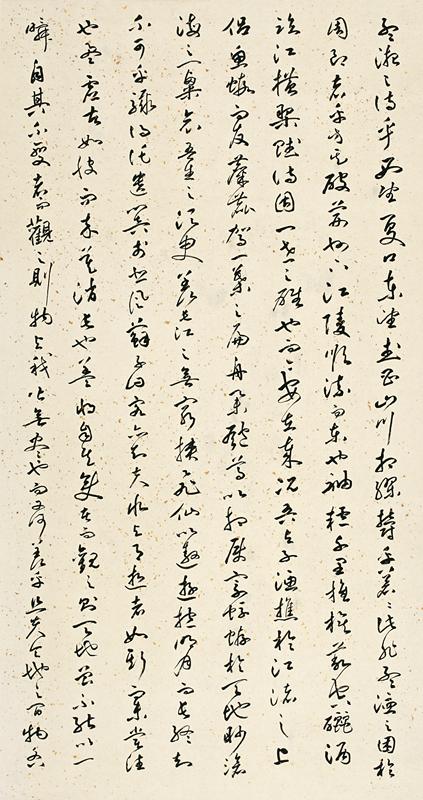 孟德之詩乎西望夏口東望武昌山川相繆鬱乎蒼蒼此非孟德之困於
周郎者乎方其破荊州下江陵順流而東也舳艫千里旌旗蔽空釃酒
臨江橫槊賦詩固一世之雄也而今安在哉況吾與子漁樵於江渚之上
侶魚蝦而友麋鹿駕一葉之扁舟舉匏尊以相屬寄蜉蝣於天地渺滄
海之一粟哀吾生之須臾羨長江之無窮挾飛仙以遨遊抱明月而長終知
不可乎驟得託遺響於悲風蘇子曰客亦知夫水與月逝者如斯而未嘗往
也盈虛者如彼而卒莫消長也蓋將自其變者而觀之則天地曾不能以一
瞬自其不變者而觀之則物與我皆無盡也而又何羨乎且夫天地之間物各